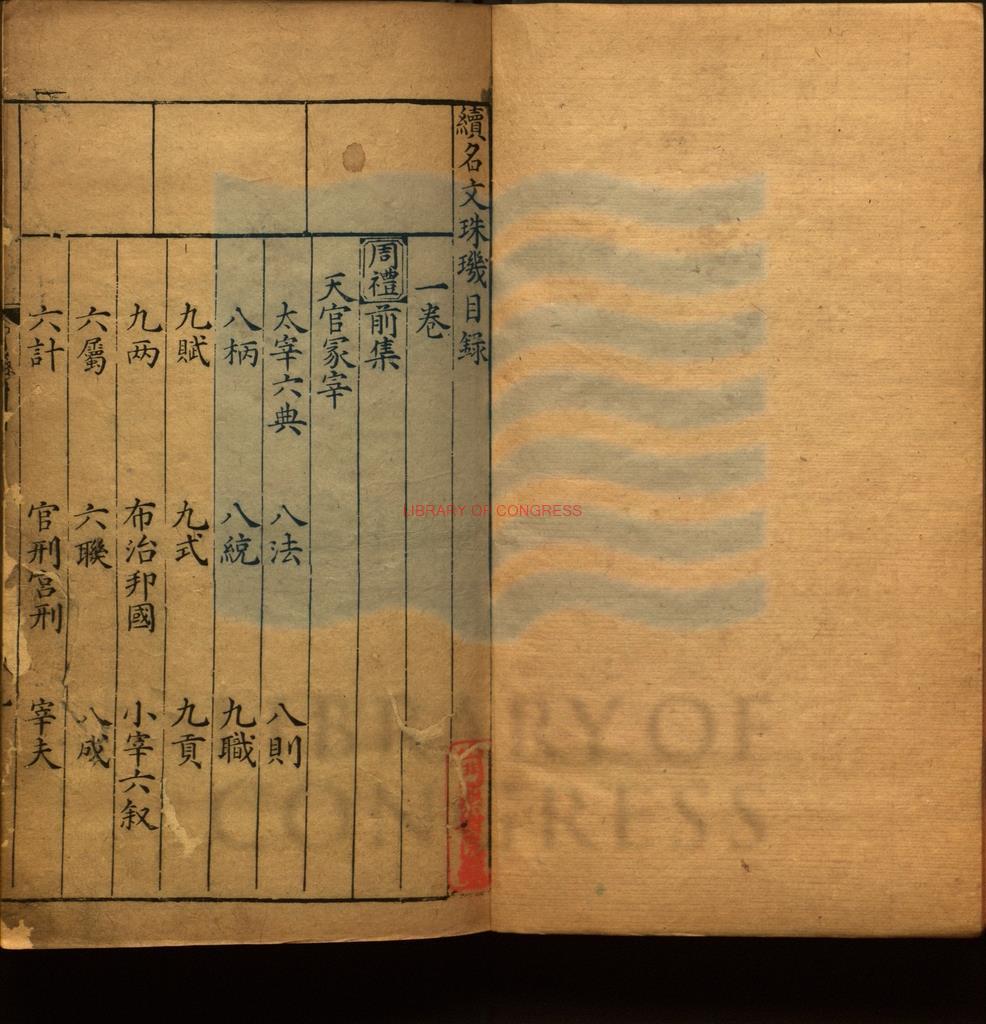 續名文珠璣目録
一卷
周禮前集
天官冢宰
太宰六典 八法 八則
八柄 八統 九職
九賦 九式 九貢
九两 布治邦國 小宰六叙
六屬 六聯 八成
六計 官刑宮刑 宰夫
LIBRARY OF CONGRESS
LIBRARY OF
CONGRESS